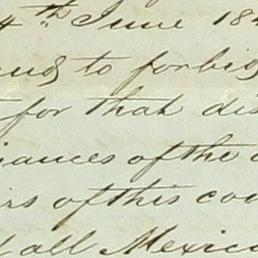 4th June 184
and to forbid
for that dis
iances of the
rs of this cou
all Mexica